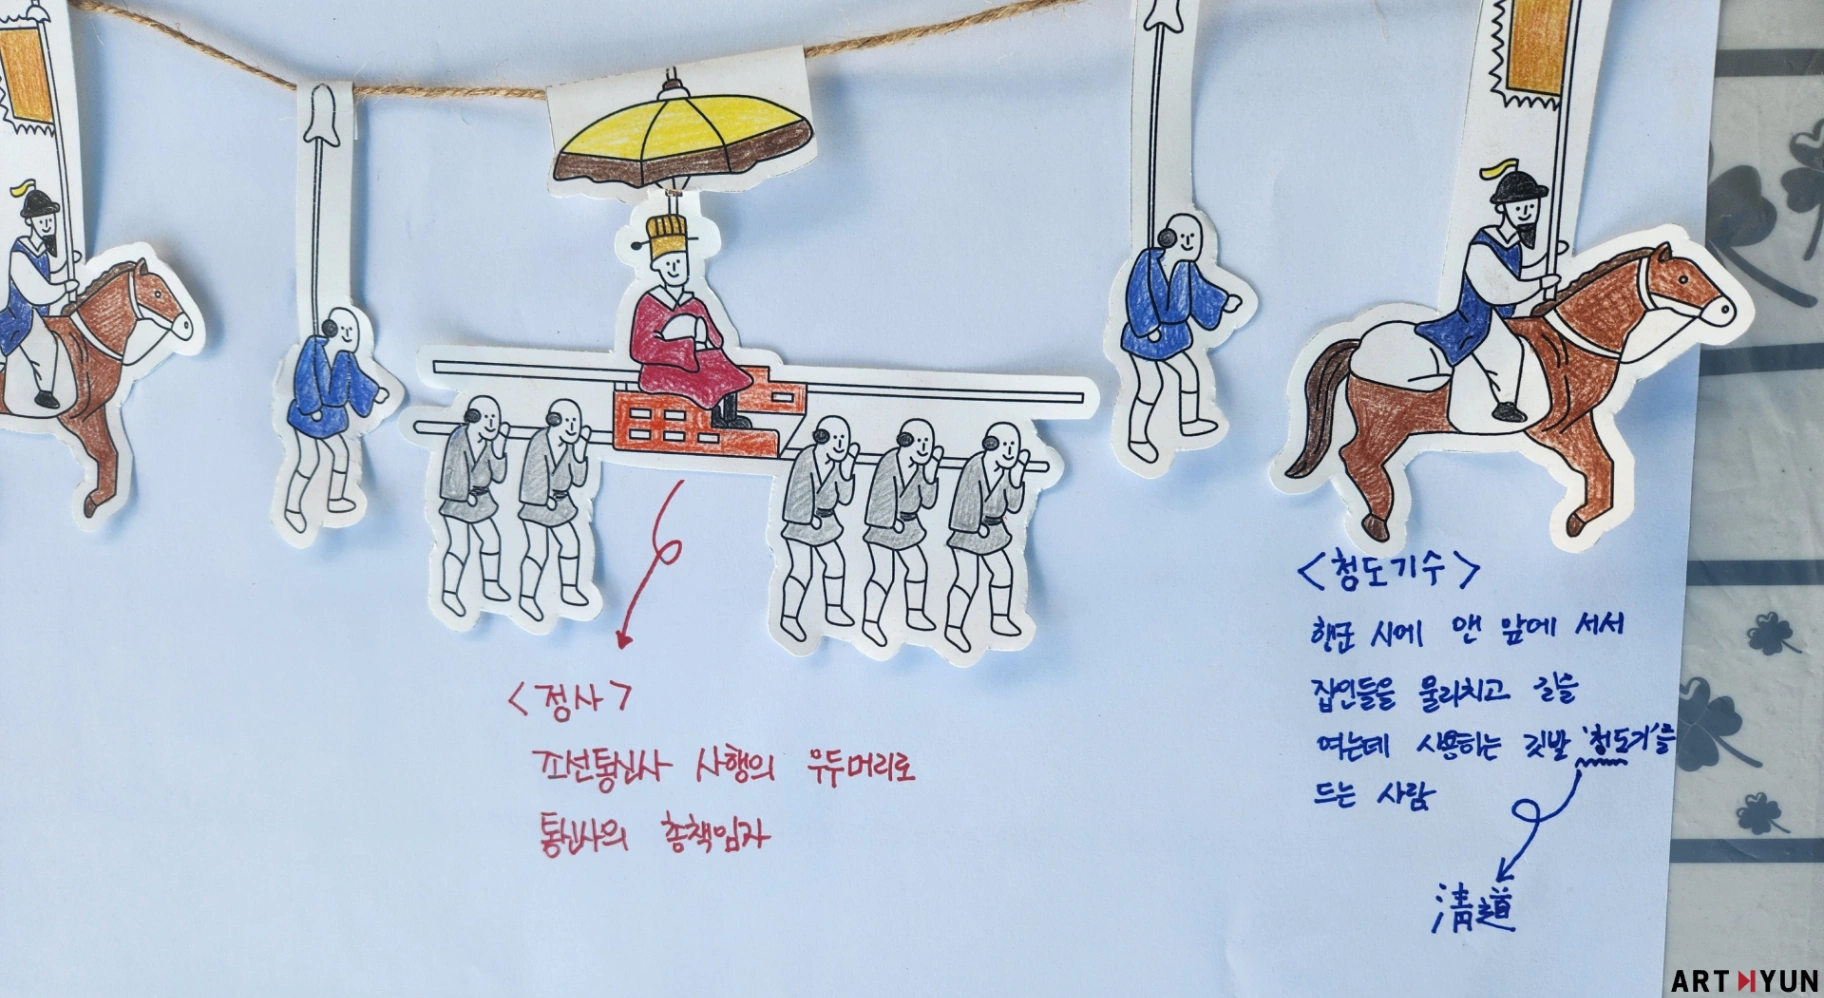 <정사>
조선통신사 사행의 우두머리로
통신사의 총책임자
<청도기수>
행군 시에 맨 앞에 서서
잡인들을 물리치고 길을
여는데 사용하는 깃발 '청도기'를
드는 사람
淸道
ART HYUN